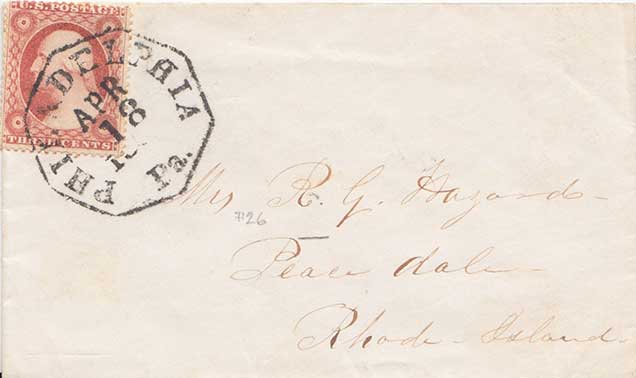 U.S. POSTAGE
THREE CENTS
PHILADELPHIA
APR
18
Pa.
Mrs R. G. Hazard
#26
Peace dale
Rhode Island